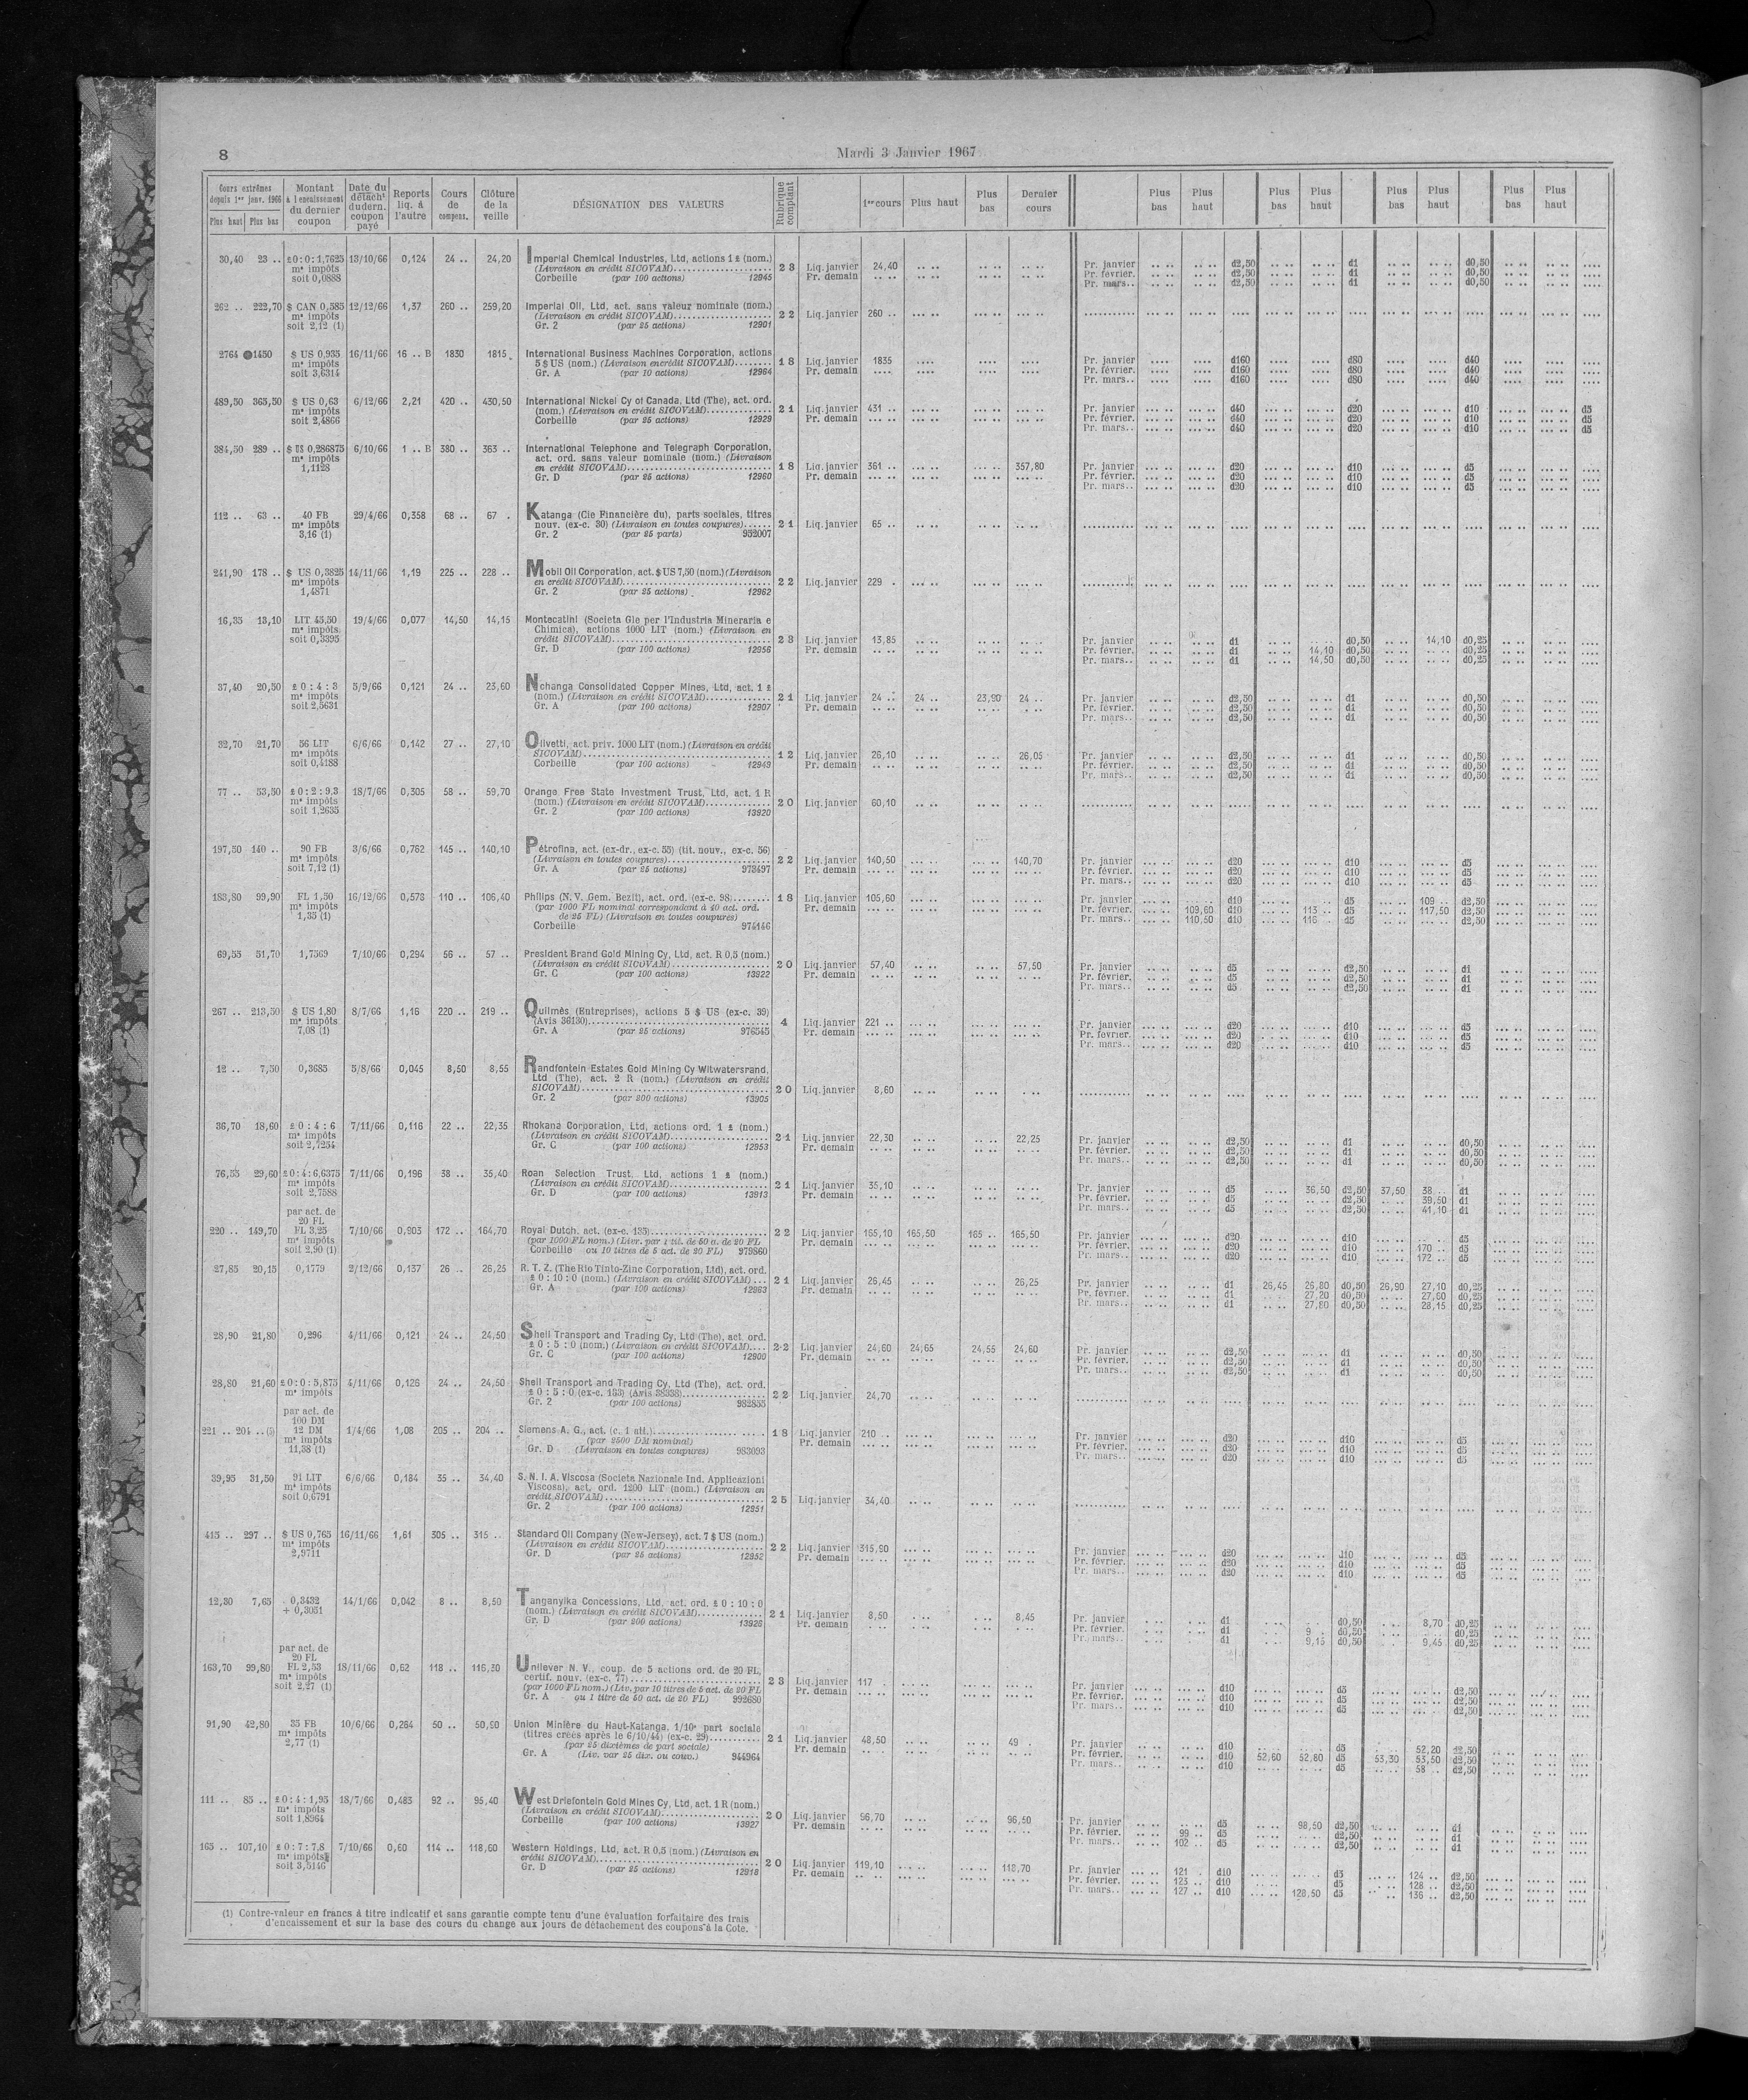 8
Mardi 3 Janvier 1967
Cours extrêmes depuis 1er janv. 1966 Plus haut Plus bas | Montant à l'encaissement du dernier coupon | Date du détacht du dern. coupon payé | Reports liq. à l'autre | Cours de compens. | Clôture de la veille | DÉSIGNATION DES VALEURS | Rubrique comptant | 1er cours | Plus haut | Plus bas | Dernier cours | Plus bas | Plus haut | Plus bas | Plus haut | Plus bas | Plus haut | Plus bas | Plus haut
30,40 23 .. £0:0:1,7625 13/10/66 0,124 24 .. 24,20 Imperial Chemical Industries, Ltd, actions 1 £ (nom.)
m* impôts (Livraison en crédit SICOVAM) 23 Liq. janvier 24,40 Pr. janvier d2,50 d1 d0,50
soit 0,0888 Corbeille (par 100 actions) 12945 Pr. demain Pr. février. d2,50 d1 d0,50
Pr. mars.. d2,50 d1 d0,50
262 .. 222,70 $ CAN 0,585 12/12/66 1,37 260 .. 259,20 Imperial Oil, Ltd, act. sans valeur nominale (nom.)
m* impôts (Livraison en crédit SICOVAM) 22 Liq. janvier 260 ..
soit 2,12 (1) Gr. 2 (par 25 actions) 12901
2764 1450 $ US 0,935 16/11/66 16 .. B 1830 1815 International Business Machines Corporation, actions
m* impôts 5 $ US (nom.) (Livraison en crédit SICOVAM) 18 Liq. janvier 1835 Pr. janvier d160 d80 d40
soit 3,6314 Gr. A (par 10 actions) 12964 Pr. demain Pr. février. d160 d80 d40
Pr. mars.. d160 d80 d40
489,50 363,50 $ US 0,63 6/12/66 2,21 420 .. 430,50 International Nickel Cy of Canada, Ltd (The), act. ord.
m* impôts (nom.) (Livraison en crédit SICOVAM) 21 Liq. janvier 431 .. Pr. janvier d40 d20 d10 d5
soit 2,4866 Corbeille (par 25 actions) 12929 Pr. demain Pr. février. d40 d20 d10 d5
Pr. mars.. d40 d20 d10 d5
384,50 289 .. $ US 0,286875 6/10/66 1 .. B 380 .. 363 .. International Telephone and Telegraph Corporation,
m* impôts act. ord. sans valeur nominale (nom.) (Livraison
1,1128 en crédit SICOVAM) 18 Liq. janvier 361 .. 357,80 Pr. janvier d20 d10 d5
Gr. D (par 25 actions) 12960 Pr. demain Pr. février. d20 d10 d5
Pr. mars.. d20 d10 d5
112 .. 63 .. 40 FB 29/4/66 0,358 68 .. 67 . Katanga (Cie Financière du), parts sociales, titres
m* impôts nouv. (ex-c. 30) (Livraison en toutes coupures) 21 Liq. janvier 65 ..
3,16 (1) Gr. 2 (par 25 parts) 952007
241,90 178 .. $ US 0,3825 14/11/66 1,19 225 .. 228 .. Mobil Oil Corporation, act. $ US 7,50 (nom.) (Livraison
m* impôts en crédit SICOVAM) 22 Liq. janvier 229 .
1,4871 Gr. 2 (par 25 actions) 12962
16,35 13,10 LIT 45,50 19/4/66 0,077 14,50 14,15 Montecatini (Societa Gle per l'Industria Mineraria e
m* impôts Chimica), actions 1000 LIT (nom.) (Livraison en
soit 0,3395 crédit SICOVAM) 23 Liq. janvier 13,85 Pr. janvier d1 d0,50 14,10 d0,25
Gr. D (par 100 actions) 12956 Pr. demain Pr. février. d1 14,10 d0,50 d0,25
Pr. mars.. d1 14,50 d0,50 d0,25
37,40 20,50 £ 0 : 4 : 3 5/9/66 0,121 24 .. 23,60 Nchanga Consolidated Copper Mines, Ltd, act. 1 £
m* impôts (nom.) (Livraison en crédit SICOVAM) 21 Liq. janvier 24 .. 24 .. 23,90 24 .. Pr. janvier d2,50 d1 d0,50
soit 2,5631 Gr. A (par 100 actions) 12907 Pr. demain Pr. février. d2,50 d1 d0,50
Pr. mars.. d2,50 d1 d0,50
32,70 21,70 56 LIT 6/6/66 0,142 27 .. 27,10 Olivetti, act. priv. 1000 LIT (nom.) (Livraison en crédit
m* impôts SICOVAM) 12 Liq. janvier 26,10 26,05 Pr. janvier d2,50 d1 d0,50
soit 0,4188 Corbeille (par 100 actions) 12949 Pr. demain Pr. février. d2,50 d1 d0,50
Pr. mars.. d2,50 d1 d0,50
77 .. 53,50 £ 0 : 2 : 9,3 18/7/66 0,305 58 .. 59,70 Orange Free State Investment Trust, Ltd, act. 1 R
m* impôts (nom.) (Livraison en crédit SICOVAM) 20 Liq. janvier 60,10
soit 1,2635 Gr. 2 (par 100 actions) 13920
197,50 140 .. 90 FB 3/6/66 0,762 145 .. 140,10 Pétrofina, act. (ex-dr., ex-c. 55) (tit. nouv., ex-c. 56)
m* impôts (Livraison en toutes coupures) 22 Liq. janvier 140,50 140,70 Pr. janvier d20 d10 d5
soit 7,12 (1) Gr. A (par 25 actions) 973497 Pr. demain Pr. février. d20 d10 d5
Pr. mars.. d20 d10 d5
183,80 99,90 FL 1,50 16/12/66 0,573 110 .. 106,40 Philips (N. V. Gem. Bezit), act. ord. (ex-c. 98) 18 Liq. janvier 105,60 Pr. janvier d10 d5 109 .. d2,50
m* impôts (par 1000 FL nominal correspondant à 40 act. ord. Pr. demain Pr. février. 109,60 d10 113 .. d5 117,50 d2,50
1,35 (1) de 25 FL) (Livraison en toutes coupures) Pr. mars.. 110,50 d10 116 .. d5 d2,50
Corbeille 974146
69,55 51,70 1,7569 7/10/66 0,294 56 .. 57 .. President Brand Gold Mining Cy, Ltd, act. R 0,5 (nom.)
(Livraison en crédit SICOVAM) 20 Liq. janvier 57,40 57,50 Pr. janvier d5 d2,50 d1
Gr. C (par 100 actions) 13922 Pr. demain Pr. février. d5 d2,50 d1
Pr. mars.. d5 d2,50 d1
267 .. 213,50 $ US 1,80 8/7/66 1,16 220 .. 219 .. Quilmès (Entreprises), actions 5 $ US (ex-c. 39)
m* impôts (Avis 36130) 4 Liq. janvier 221 .. Pr. janvier d20 d10 d5
7,08 (1) Gr. A (par 25 actions) 976545 Pr. demain Pr. février. d20 d10 d5
Pr. mars.. d20 d10 d5
12 .. 7,50 0,3685 5/8/66 0,045 8,50 8,55 Randfontein Estates Gold Mining Cy Witwatersrand,
Ltd (The), act. 2 R (nom.) (Livraison en crédit
SICOVAM) 20 Liq. janvier 8,60
Gr. 2 (par 200 actions) 13905
36,70 18,60 £ 0 : 4 : 6 7/11/66 0,116 22 .. 22,35 Rhokana Corporation, Ltd, actions ord. 1 £ (nom.)
m* impôts (Livraison en crédit SICOVAM) 21 Liq. janvier 22,30 22,25 Pr. janvier d2,50 d1 d0,50
soit 2,7254 Gr. C (par 100 actions) 12953 Pr. demain Pr. février. d2,50 d1 d0,50
Pr. mars.. d2,50 d1 d0,50
76,55 29,60 £0:4:6,6375 7/11/66 0,196 38 .. 35,40 Roan Selection Trust, Ltd, actions 1 £ (nom.)
m* impôts (Livraison en crédit SICOVAM) 21 Liq. janvier 35,10 Pr. janvier d5 36,50 d2,50 37,50 38 .. d1
soit 2,7588 Gr. D (par 100 actions) 13913 Pr. demain Pr. février. d5 d2,50 39,50 d1
Pr. mars.. d5 d2,50 41,10 d1
par act. de
20 FL
220 .. 149,70 FL 3,25 7/10/66 0,903 172 .. 164,70 Royal Dutch, act. (ex-c. 135) 22 Liq. janvier 165,10 165,50 165 .. 165,50 Pr. janvier d20 d10 d5
m* impôts (par 1000 FL nom.) (Liv. par 1 tit. de 50 a. de 20 FL Pr. demain Pr. février. d20 d10 170 .. d5
soit 2,90 (1) Corbeille ou 10 titres de 5 act. de 20 FL) 979860 Pr. mars.. d20 d10 172 .. d5
27,85 20,15 0,1779 2/12/66 0,137 26 .. 26,25 R. T. Z. (The Rio Tinto-Zinc Corporation, Ltd), act. ord.
£ 0 : 10 : 0 (nom.) (Livraison en crédit SICOVAM) 21 Liq. janvier 26,45 26,25 Pr. janvier d1 26,45 26,80 d0,50 26,90 27,10 d0,25
Gr. A (par 100 actions) 12963 Pr. demain Pr. février. d1 27,20 d0,50 27,60 d0,25
Pr. mars.. d1 27,80 d0,50 28,15 d0,25
28,90 21,80 0,296 4/11/66 0,121 24 .. 24,50 Shell Transport and Trading Cy, Ltd (The), act. ord.
£ 0 : 5 : 0 (nom.) (Livraison en crédit SICOVAM) 22 Liq. janvier 24,60 24,65 24,55 24,60 Pr. janvier d2,50 d1 d0,50
Gr. C (par 100 actions) 12900 Pr. demain Pr. février. d2,50 d1 d0,50
Pr. mars.. d2,50 d1 d0,50
28,80 21,60 £0:0:5,875 4/11/66 0,126 24 .. 24,50 Shell Transport and Trading Cy, Ltd (The), act. ord.
m* impôts £ 0 : 5 : 0 (ex-c. 133) (Avis 38338) 22 Liq. janvier 24,70
Gr. 2 (par 100 actions) 982855
par act. de
100 DM
221 .. 204 .. 12 DM 1/4/66 1,08 205 .. 204 .. Siemens A. G., act. (c. 1 att.) 18 Liq. janvier 210 .. Pr. janvier d20 d10 d5
m* impôts (par 2500 DM nominal) Pr. demain Pr. février. d20 d10 d5
11,38 (1) Gr. D (Livraison en toutes coupures) 983093 Pr. mars.. d20 d10 d5
39,95 31,50 91 LIT 6/6/66 0,184 35 .. 34,40 S. N. I. A. Viscosa (Societa Nazionale Ind. Applicazioni
m* impôts Viscosa), act. ord. 1200 LIT (nom.) (Livraison en
soit 0,6791 crédit SICOVAM) 25 Liq. janvier 34,40
Gr. 2 (par 100 actions) 12951
415 .. 297 .. $ US 0,765 16/11/66 1,61 305 .. 315 .. Standard Oil Company (New-Jersey), act. 7 $ US (nom.)
m* impôts (Livraison en crédit SICOVAM) 22 Liq. janvier 315,90 Pr. janvier d20 d10 d5
2,9711 Gr. D (par 25 actions) 12952 Pr. demain Pr. février. d20 d10 d5
Pr. mars.. d20 d10 d5
12,30 7,65 0,3432 14/1/66 0,042 8 .. 8,50 Tanganyika Concessions, Ltd, act. ord. £ 0 : 10 : 0
+ 0,3051 (nom.) (Livraison en crédit SICOVAM) 21 Liq. janvier 8,50 8,45 Pr. janvier d1 d0,50 8,70 d0,25
Gr. D (par 200 actions) 13926 Pr. demain Pr. février. d1 9 .. d0,50 d0,25
Pr. mars.. d1 9,15 d0,50 9,45 d0,25
par act. de
20 FL
163,70 99,80 FL 2,53 18/11/66 0,62 118 .. 116,30 Unilever N. V., coup. de 5 actions ord. de 20 FL,
m* impôts certif. nouv. (ex-c. 77) 23 Liq. janvier 117 . Pr. janvier d10 d5 d2,50
soit 2,27 (1) (par 1000 FL nom.) (Liv. par 10 titres de 5 act. de 20 FL Pr. demain Pr. février. d10 d5 d2,50
Gr. A ou 1 titre de 50 act. de 20 FL) 992680 Pr. mars.. d10 d5 d2,50
91,90 42,80 35 FB 10/6/66 0,264 50 .. 50,90 Union Minière du Haut-Katanga, 1/10e part sociale
m* impôts (titres créés après le 6/10/44) (ex-c. 29) 21 Liq. janvier 48,50 49 .. Pr. janvier d10 d5 52,20 d2,50
2,77 (1) (par 25 dixièmes de part sociale) Pr. demain Pr. février. d10 52,60 52,80 d5 53,30 53,50 d2,50
Gr. A (Liv. par 25 dix. ou couv.) 944964 Pr. mars.. d10 d5 58 .. d2,50
111 .. 85 .. £ 0 : 4 : 1,95 18/7/66 0,483 92 .. 95,40 West Driefontein Gold Mines Cy, Ltd, act. 1 R (nom.)
m* impôts (Livraison en crédit SICOVAM) 20 Liq. janvier 96,70 96,50 Pr. janvier d5 98,50 d2,50 d1
soit 1,8964 Corbeille (par 100 actions) 13927 Pr. demain Pr. février. 99 .. d5 d2,50 d1
Pr. mars.. 102 .. d5 d2,50 d1
165 .. 107,10 £ 0 : 7 : 7,8 7/10/66 0,60 114 .. 118,60 Western Holdings, Ltd, act. R 0,5 (nom.) (Livraison en
m* impôts crédit SICOVAM) 20 Liq. janvier 119,10 118,70 Pr. janvier 121 . d10 d5 124 .. d2,50
soit 3,5146 Gr. D (par 25 actions) 12918 Pr. demain Pr. février. 123 .. d10 d5 128 .. d2,50
Pr. mars.. 127 .. d10 128,50 d5 136 .. d2,50
(1) Contre-valeur en francs à titre indicatif et sans garantie compte tenu d'une évaluation forfaitaire des frais
d'encaissement et sur la base des cours du change aux jours de détachement des coupons à la Cote.